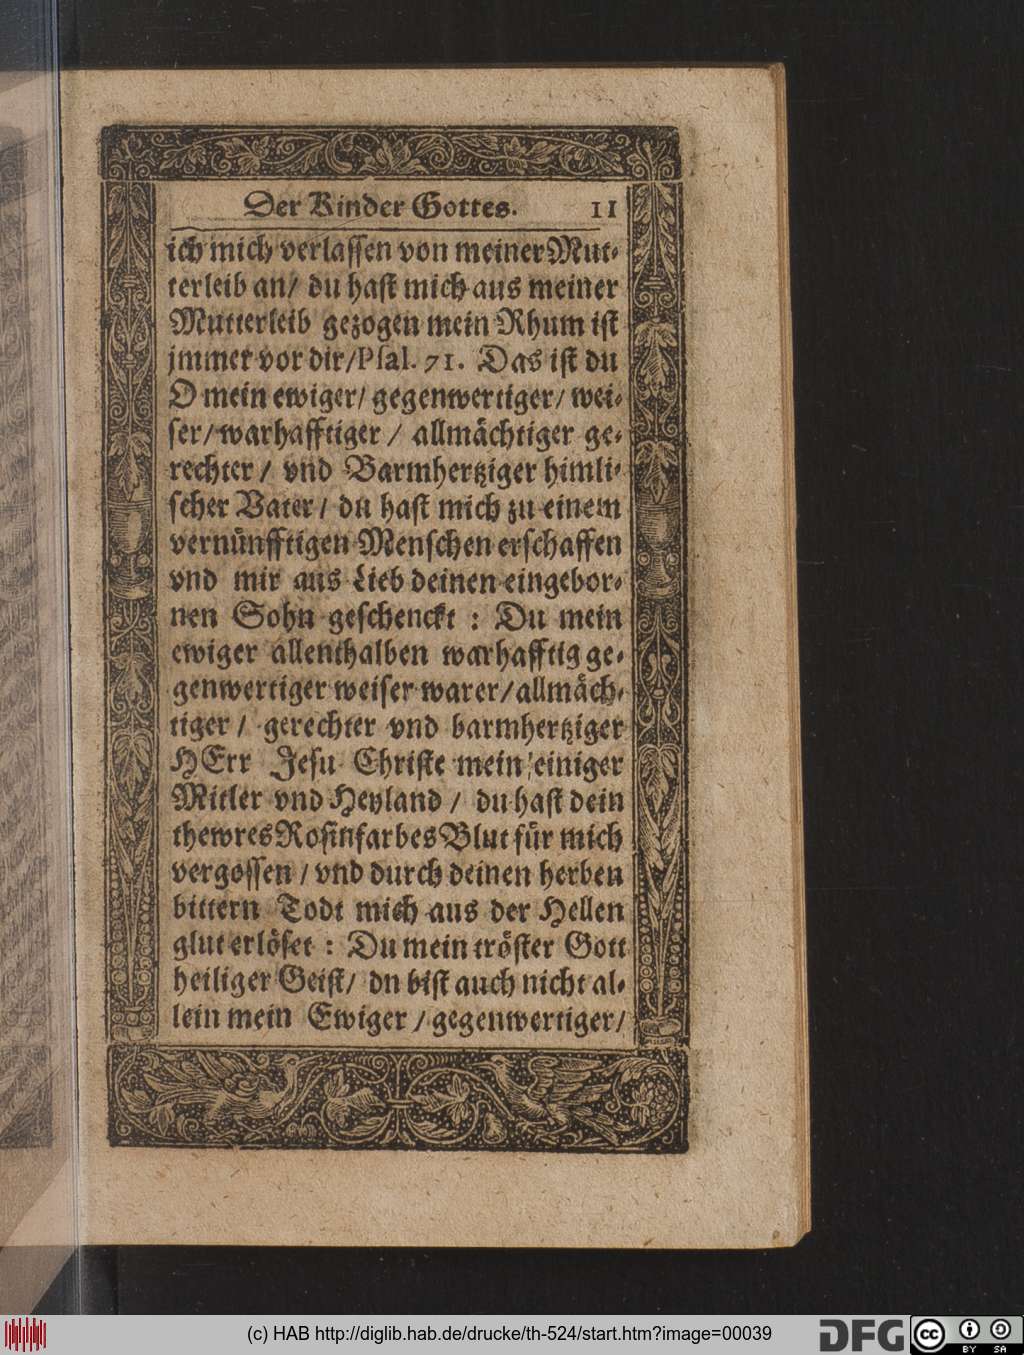 Der Kinder Gottes. 11
ich mich verlassen von meiner Mut⸗
terleib an/ du hast mich aus meiner
Mutterleib gezogen mein Rhum ist
jmmer vor dir/Psal. 71. Das ist du
O mein ewiger/ gegenwertiger/ wei⸗
ser/ warhafftiger / allmächtiger ge⸗
rechter / vnd Barmhertziger himli⸗
scher Vater / du hast mich zu einem
vernünfftigen Menschen erschaffen
vnd mir aus Lieb deinen eingebor⸗
nen Sohn geschenckt : Du mein
ewiger allenthalben warhafftig ge⸗
genwertiger weiser warer/ allmäch⸗
tiger / gerechter vnd barmhertziger
HErr Jesu Christe mein einiger
Mitler vnd Heyland / du hast dein
thewres Rosinfarbes Blut für mich
vergossen / vnd durch deinen herben
bittern Todt mich aus der Hellen
glut erlöset : Du mein tröster Gott
heiliger Geist/ dn bist auch nicht al⸗
lein mein Ewiger / gegenwertiger/
(c) HAB http://diglib.hab.de/drucke/th-524/start.htm?image=00039
DFG
cc BY SA